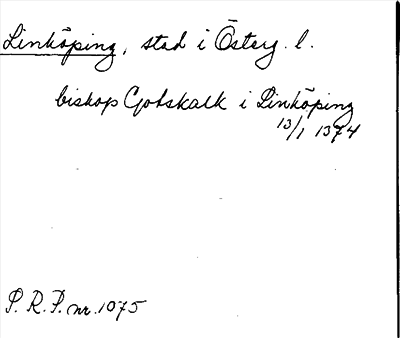 Linköping, stad i Österg. l.
biskop Gotskalk i Linköping
13/1 1374
P. R. P. nr. 1075